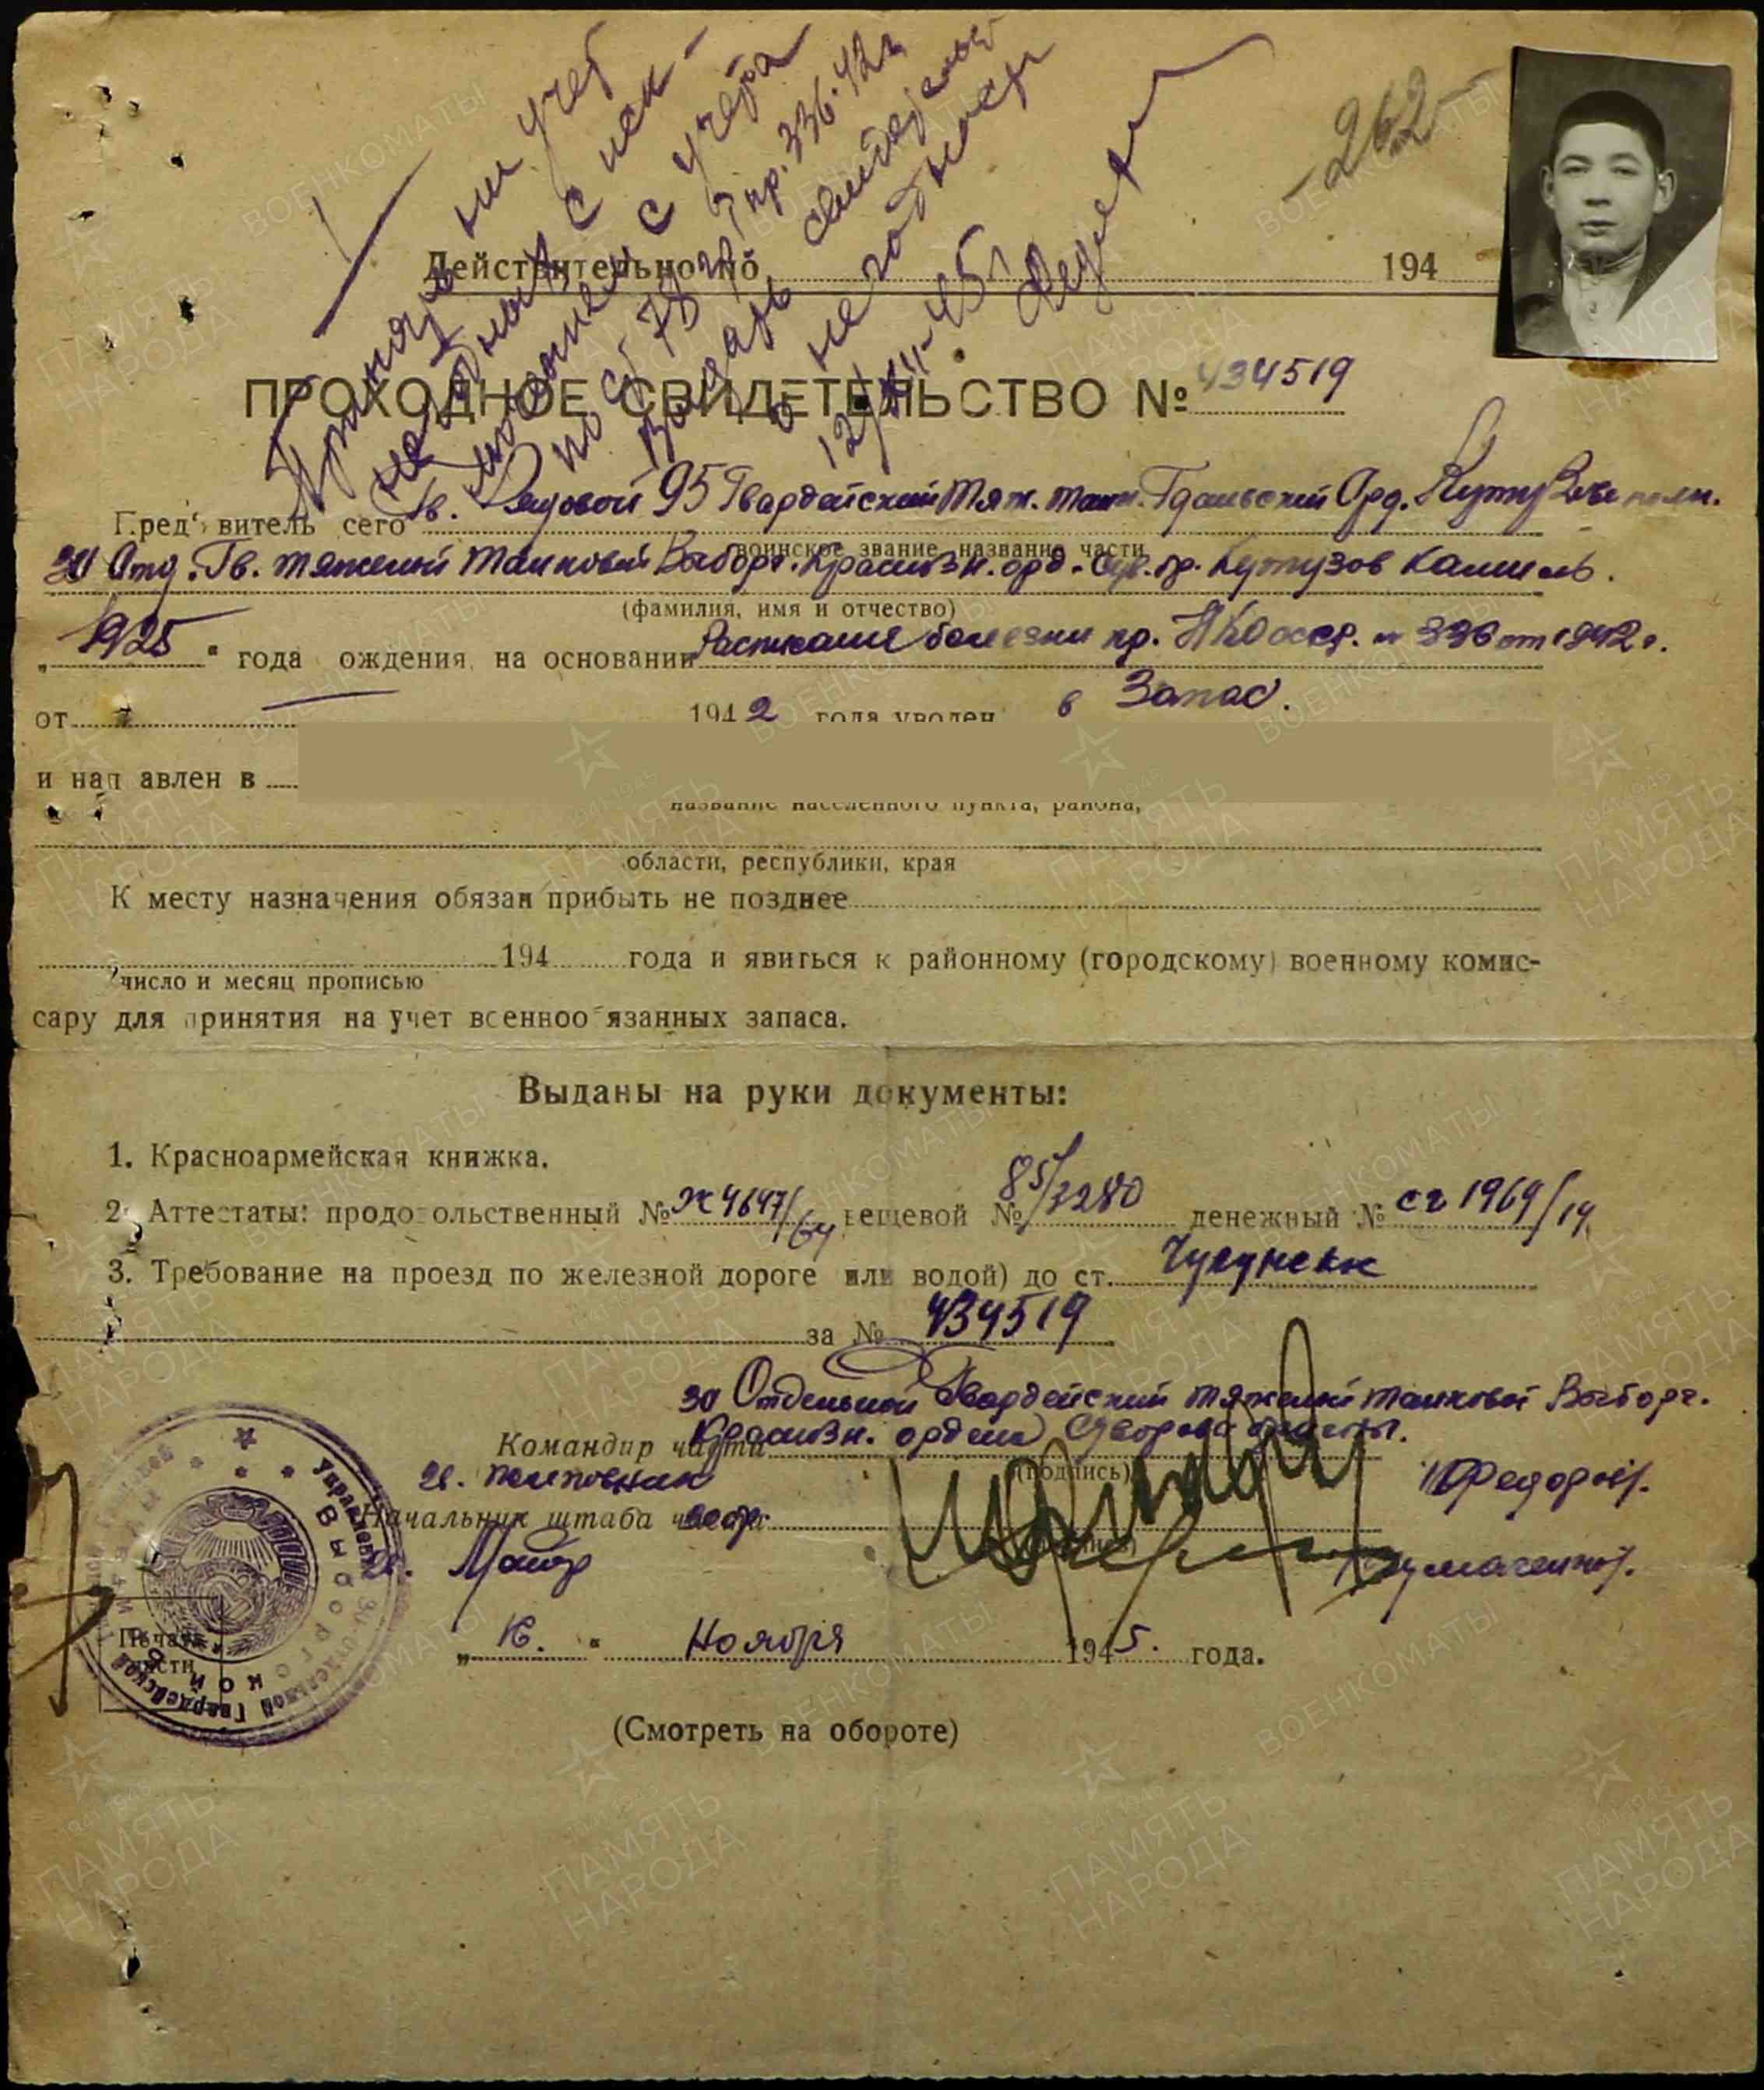 Принять на учет
негодных с иск-
лючением с учета
по ст 78 гр I пр. 336.42г
Выдать свидетельство
о негодности
12/XII-45г
-262-
Действительно по 194
ПРОХОДНОЕ СВИДЕТЕЛЬСТВО № 434519
Пред'явитель сего Гв. Рядовой 95 Гвардейский Тяж. танк. Гданьский Орд. Кутузова полк.
воинское звание, название части
30 Отд. Гв. тяжелой танковой Выборг. Краснозн. орд. Сув. бр. Кутузов Камиль.
(фамилия, имя и отчество)
„1925“ года рождения, на основании Расписание болезни пр. НКО ссср. № 336 от 1942 г.
от 1942 года уволен в Запас.
и направлен в
название населенного пункта, района,
области, республики, края
К месту назначения обязан прибыть не позднее
194 года и явиться к районному (городскому) военному комис-
число и месяц прописью
сару для принятия на учет военнообязанных запаса.
Выданы на руки документы:
1. Красноармейская книжка.
2. Аттестаты: продовольственный № Ж4647/64 вещевой № 85/3280 денежный № сч 1969/14
3. Требование на проезд по железной дороге или водой) до ст.
за № 434519
30 Отдельной Гвардейский тяжелой танковой Выборг.
Краснозн. ордена Суворова бригады.
Командир части
(подпись)
гв. полковник /Федоров/.
Начальник штаба части
(подпись)
гв. Майор
„16.“ Ноября 1945. года.
Печать
части
(Смотреть на обороте)
ПАМЯТЬ НАРОДА
ВОЕНКОМАТЫ